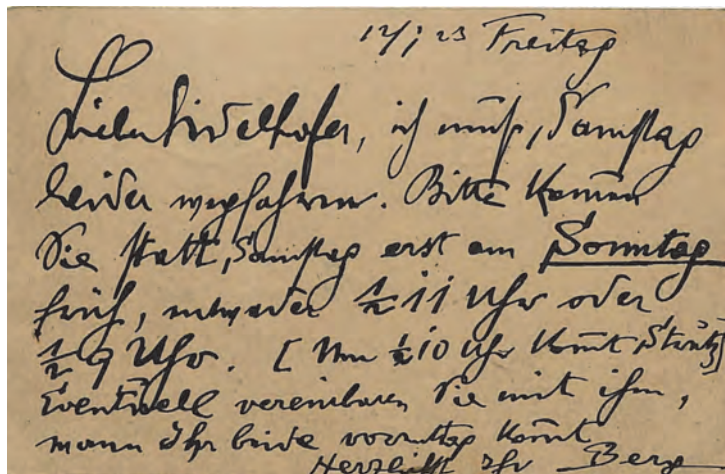 12/1 23 Freitag
Lieber Seidelhofer, ich muß Samstag
leider wegfahren. Bitte kommen
Sie statt Samstag erst am Sonntag
früh, entweder ½ 11 Uhr oder
½ 9 Uhr. [Um ½ 10 Uhr kommt]
Eventuell vereinbaren Sie mit ihm,
wann Ihr beide vormittag kommt
Herzlichst Ihr Berg